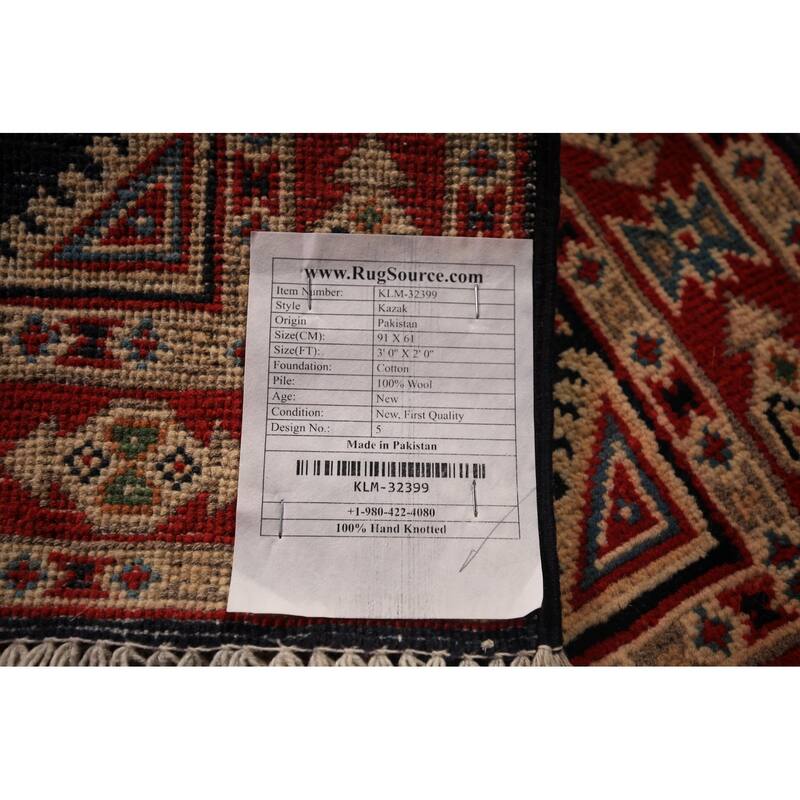 www.RugSource.com
Item Number: KLM-32399
Style Kazak
Origin Pakistan
Size(CM): 91 X 61
Size(FT): 3' 0" X 2' 0"
Foundation: Cotton
Pile: 100% Wool
Age: New
Condition: New, First Quality
Design No.: 5
Made in Pakistan
KLM-32399
+1-980-422-4080
100% Hand Knotted